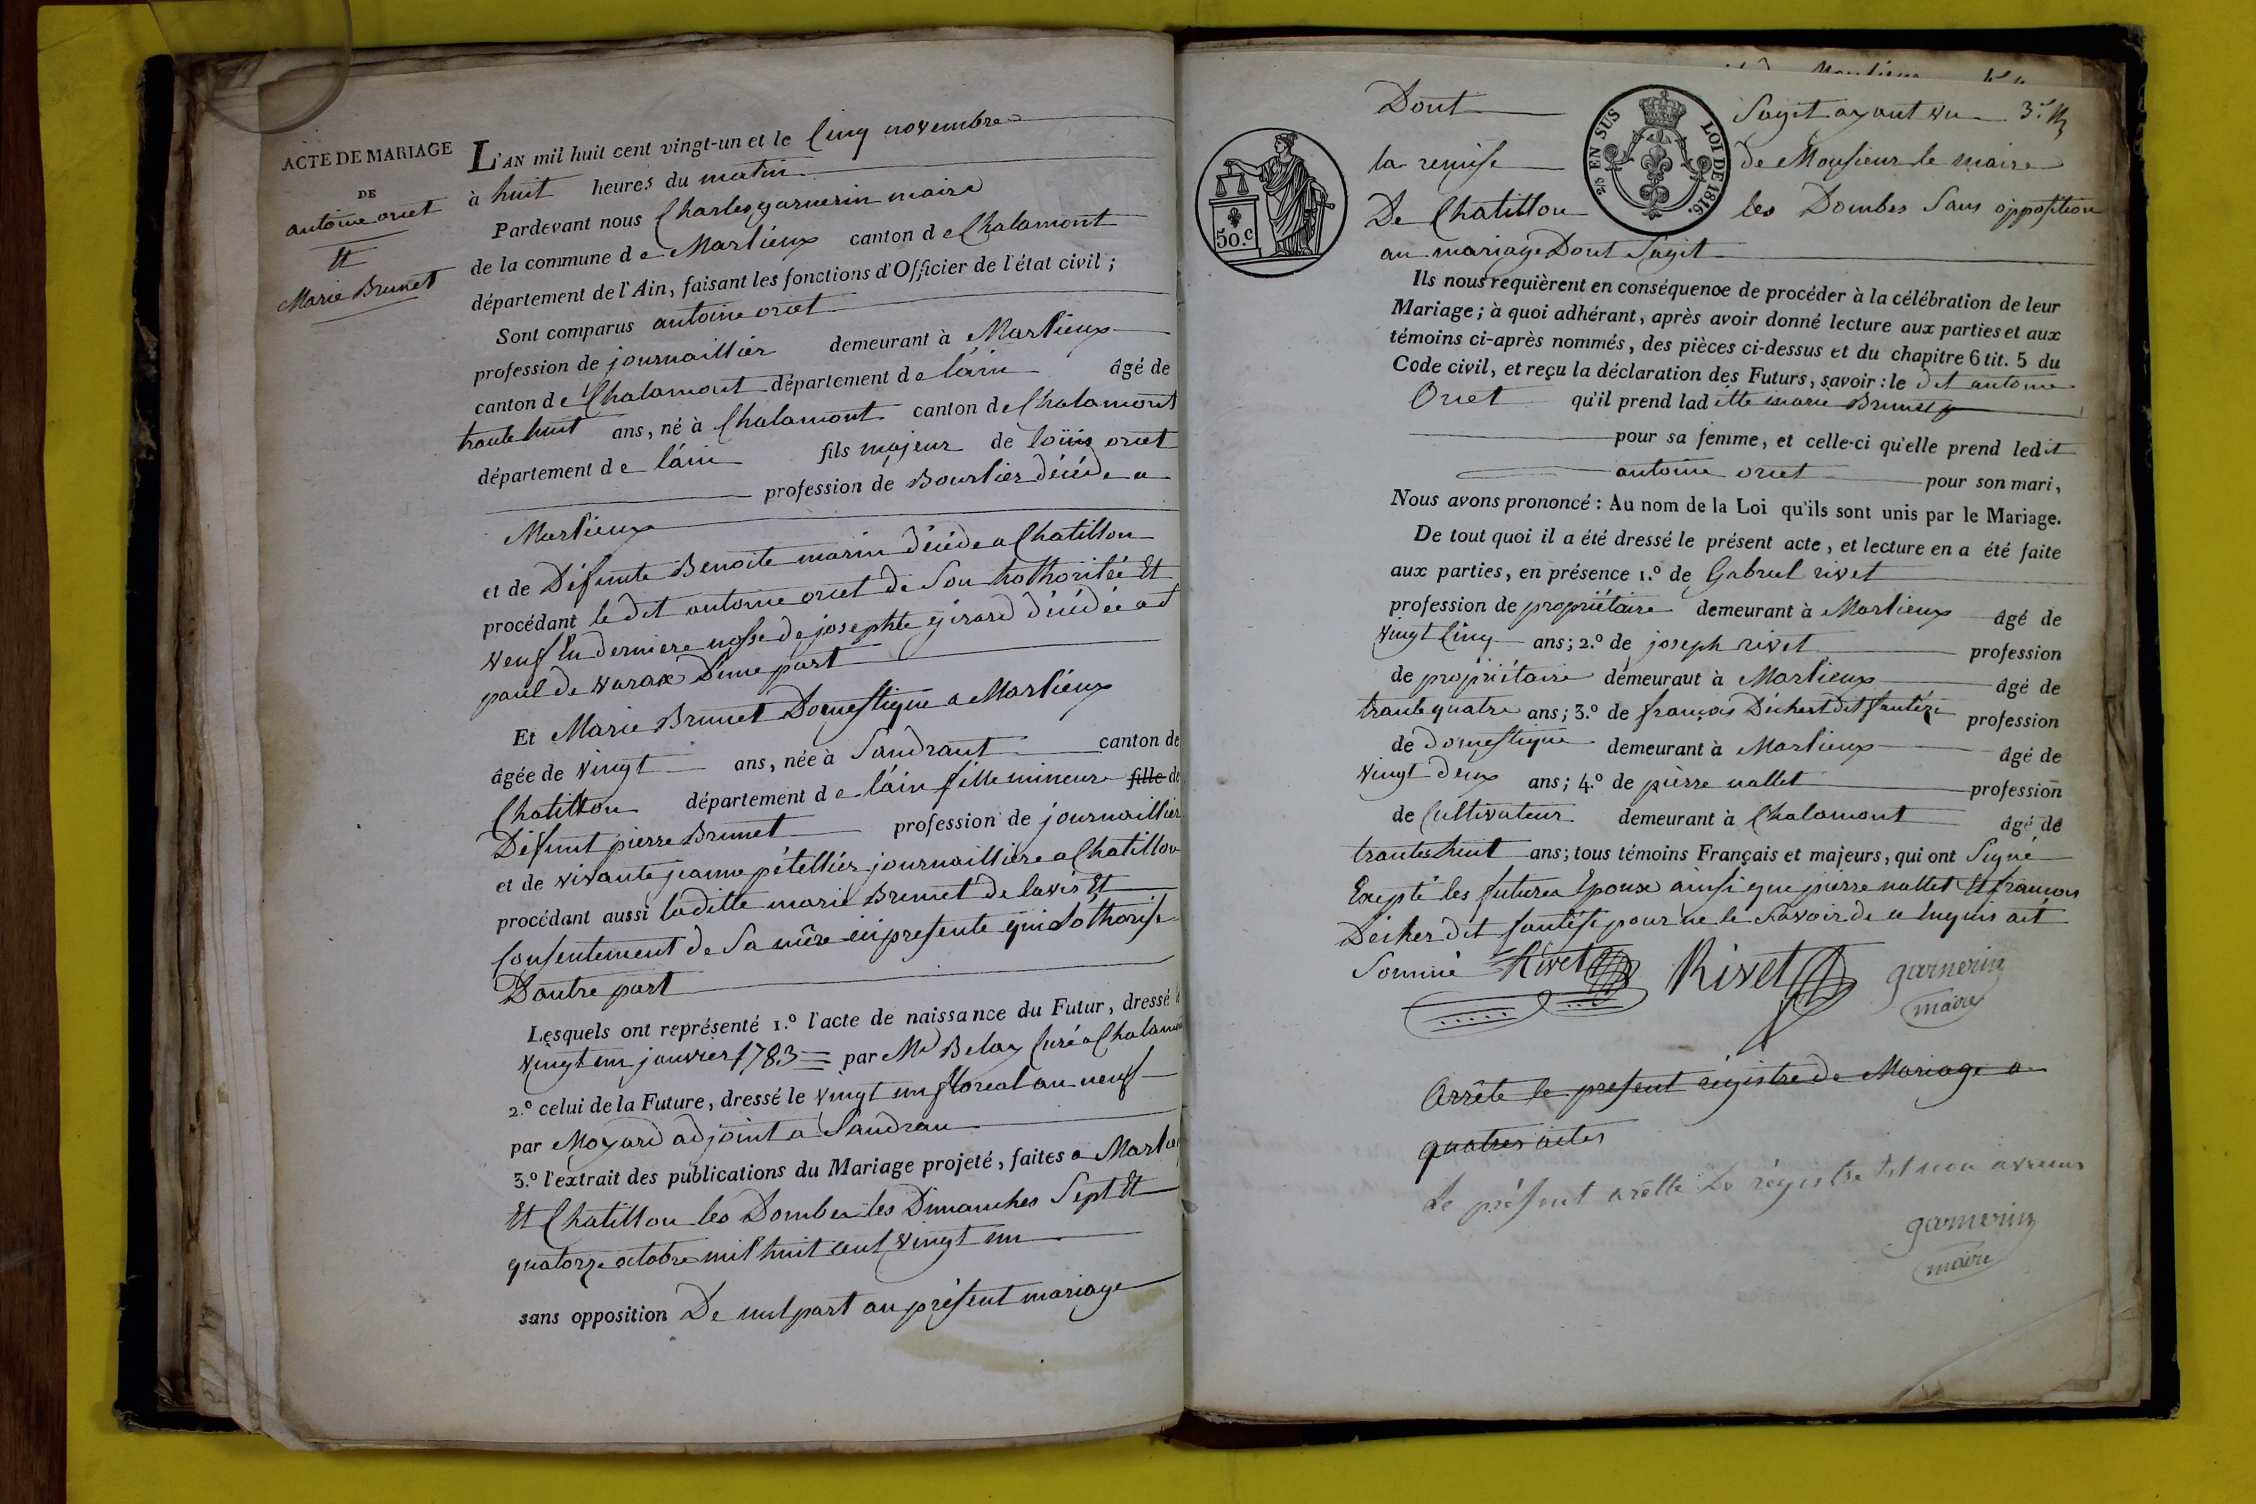 ACTE DE MARIAGE
DE
antoine oriet
Et
Marie Brunet
L'AN mil huit cent vingt-un et le Cinq novembre
à huit heures du matin
Pardevant nous Charles garnerin maire
de la commune de Marlieux canton de Chalamont
département de l'Ain, faisant les fonctions d'Officier de l'état civil ;
Sont comparus antoine oriet
profession de journaillier demeurant à Marlieux
canton de Chalamont département de láin âgé de
trante huit ans, né à Chalamont canton de Chalamont
département de láin fils majeur de loüis oriet
profession de Bourlier décédé a
Marlieux
et de Défunte Benoite marin décédé a Chatillon
procédant le dit antoine oriet de Son hothorité Et
veuf En derniere nosse de josephte girard décédée a St
paul de varax D'une part
Et Marie Brunet Domestique a Marlieux
âgée de vingt ans, née à Sandrant canton de
Chatillon département de láin fille mineure fille de
Défunt pierre Brunet profession de journaillier
et de vivante jeanne pételliér journailliere a Chatillon
procédant aussi laditte marie Brunet de lavis Et
Consentement de Sa mère ici presente qui Lothorise
Dautre part
Lesquels ont représenté 1.º l'acte de naissance du Futur, dressé le
vingt un janvier 1783 par Mr Belay Curé a Chalamont
2.º celui de la Future, dressé le vingt un floreal an neuf
par Moyard adjoint a Sandran
3.º l'extrait des publications du Mariage projeté, faites a Marlieux
Et Chatillon les Dombes les Dimanches Sept Et
quatorze octobre mil huit cent vingt un
sans opposition De nul part au présent mariage
Dont Sagit ayant vu
la remise de Monsieur le maire
De Chatillon les Dombes Sans opposition
au mariage Dont Sagit
50.C
2/5 EN SUS LOI DE 1816.
Ils nous requièrent en conséquence de procéder à la célébration de leur
Mariage ; à quoi adhérant, après avoir donné lecture aux parties et aux
témoins ci-après nommés, des pièces ci-dessus et du chapitre 6 tit. 5 du
Code civil, et reçu la déclaration des Futurs, savoir : le dit antoine
Oriet qu'il prend lad itte marie Brunet
pour sa femme, et celle-ci qu'elle prend ledit
antoine oriet pour son mari,
Nous avons prononcé : Au nom de la Loi qu'ils sont unis par le Mariage.
De tout quoi il a été dressé le présent acte, et lecture en a été faite
aux parties, en présence 1.º de Gabriel rivet
profession de propriétaire demeurant à Marlieux âgé de
vingt Cinq ans ; 2.º de joseph rivet profession
de propriétaire démeuraut à Marlieux âgé de
trante quatre ans ; 3.º de françois Déchert dit profession
de Domestique demeurant à Marlieux âgé de
vingt deux ans ; 4.º de pièrre nallet profession
de Cultivateur demeurant à Chalamont âgé de
trante huit ans ; tous témoins Français et majeurs, qui ont Signé
Exepté les futures Epoux ainsi que pierre nallet Et françois
Décher dit pour ne le Savoir de ce Enquis ait
Sommé Rivet Rivet garnerin
maire
Arrête le present régistre de Mariage a
quatres actes
Le présent arètté de régistre Est non avenue
garnerin
maire